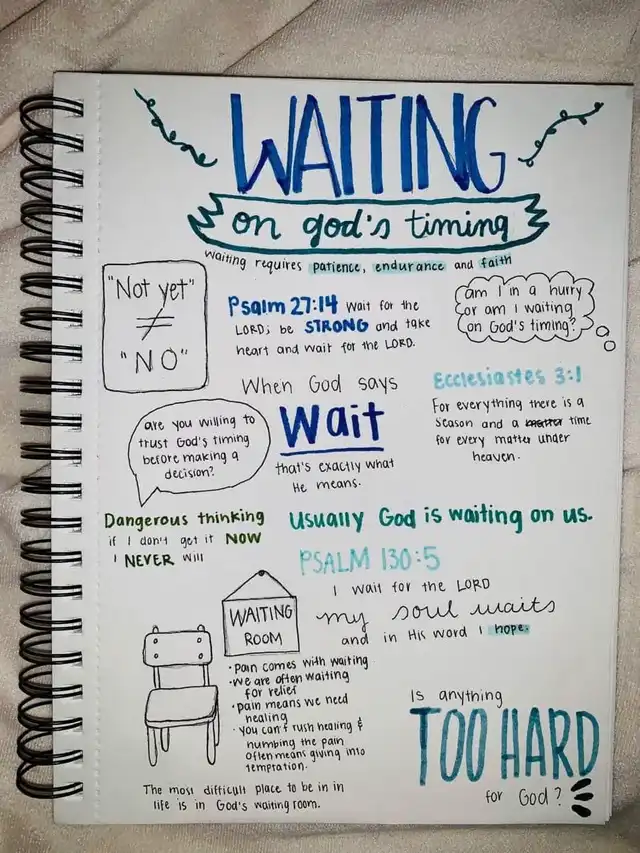 WAITING
on god's timing
Waiting requires patience, endurance and faith
"Not yet"
≠
"NO"
Psalm 27:14 wait for the
LORD; be STRONG and take
heart and wait for the LORD.
am I in a hurry
or am I waiting
on God's timing?
When God says
Wait
that's exactly what
He means.
Ecclesiastes 3:1
For everything there is a
season and a matter time
for every matter under
heaven.
are you willing to
trust God's timing
before making a
decision?
Dangerous thinking
if I don't get it NOW
I NEVER will
Usually God is waiting on us.
PSALM 130:5
I wait for the LORD
my soul waits
and in His word I hope.
WAITING
ROOM
• pain comes with waiting
• we are often waiting
for relief
• pain means we need
healing
• you can't rush healing &
numbing the pain
often means giving into
temptation.
The most difficult place to be in in
life is in God's waiting room.
Is anything
TOO HARD
for God?